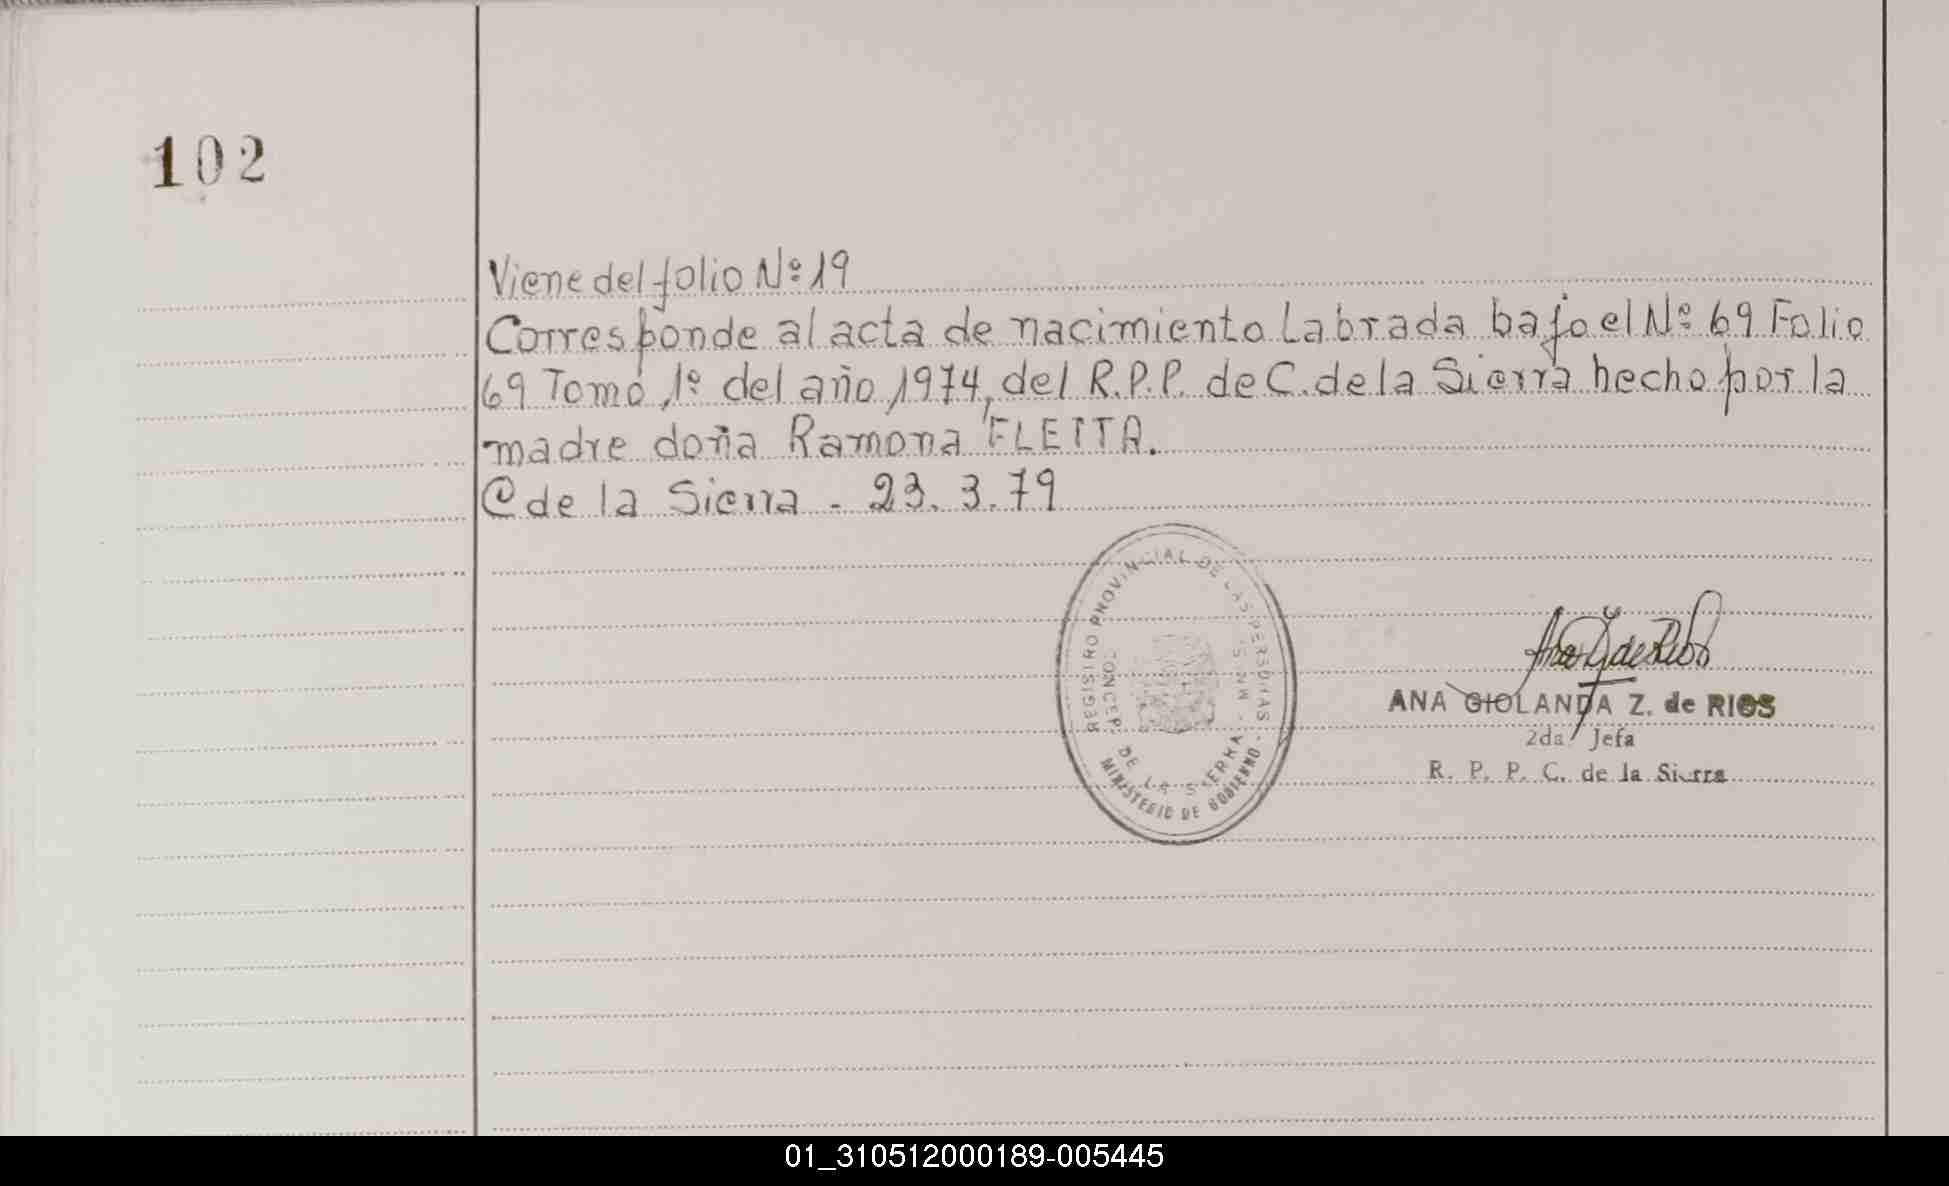 102
Viene del folio Nº 19
Corresponde al acta de nacimiento Labrada bajo el Nº 69 Folio
69 Tomo 1º del año 1974, del R.P.P. de C. de la Sierra hecho por la
madre doña Ramona FLETTA.
C de la Sierra - 23.3.79
REGISTRO PROVINCIAL DE LAS PERSONAS -
CONCEP. DE LA SIERRA - MNS.
MINISTERIO DE GOBIERNO
Ana Z de Rios
ANA GIOLANDA Z. de RIOS
2da Jefa
R. P. P. C. de la Sierra
01_310512000189-005445